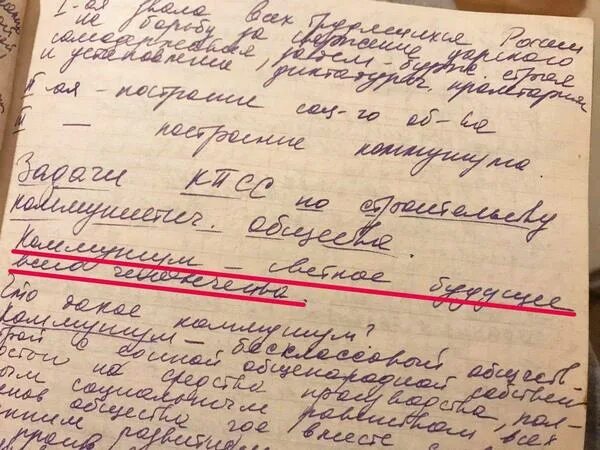 I-ая звала всех трудящихся России
на борьбу за свержение царского
самодержавия, затем - бурж. строя
и установление диктатуры пролетариа
II-ая - построение соц-го об-ва
III — построение коммунизма.
Задачи КПСС по строительству
коммунистич. общества.
Коммунизм - светлое будущее
всего человечества.
Что такое коммунизм?
Коммунизм - бесклассовый обществ
строй с единой общенародной собствен
ностью на средства производства, пол-
ным социальным равенством всех
членов общества, где вместе с
развити